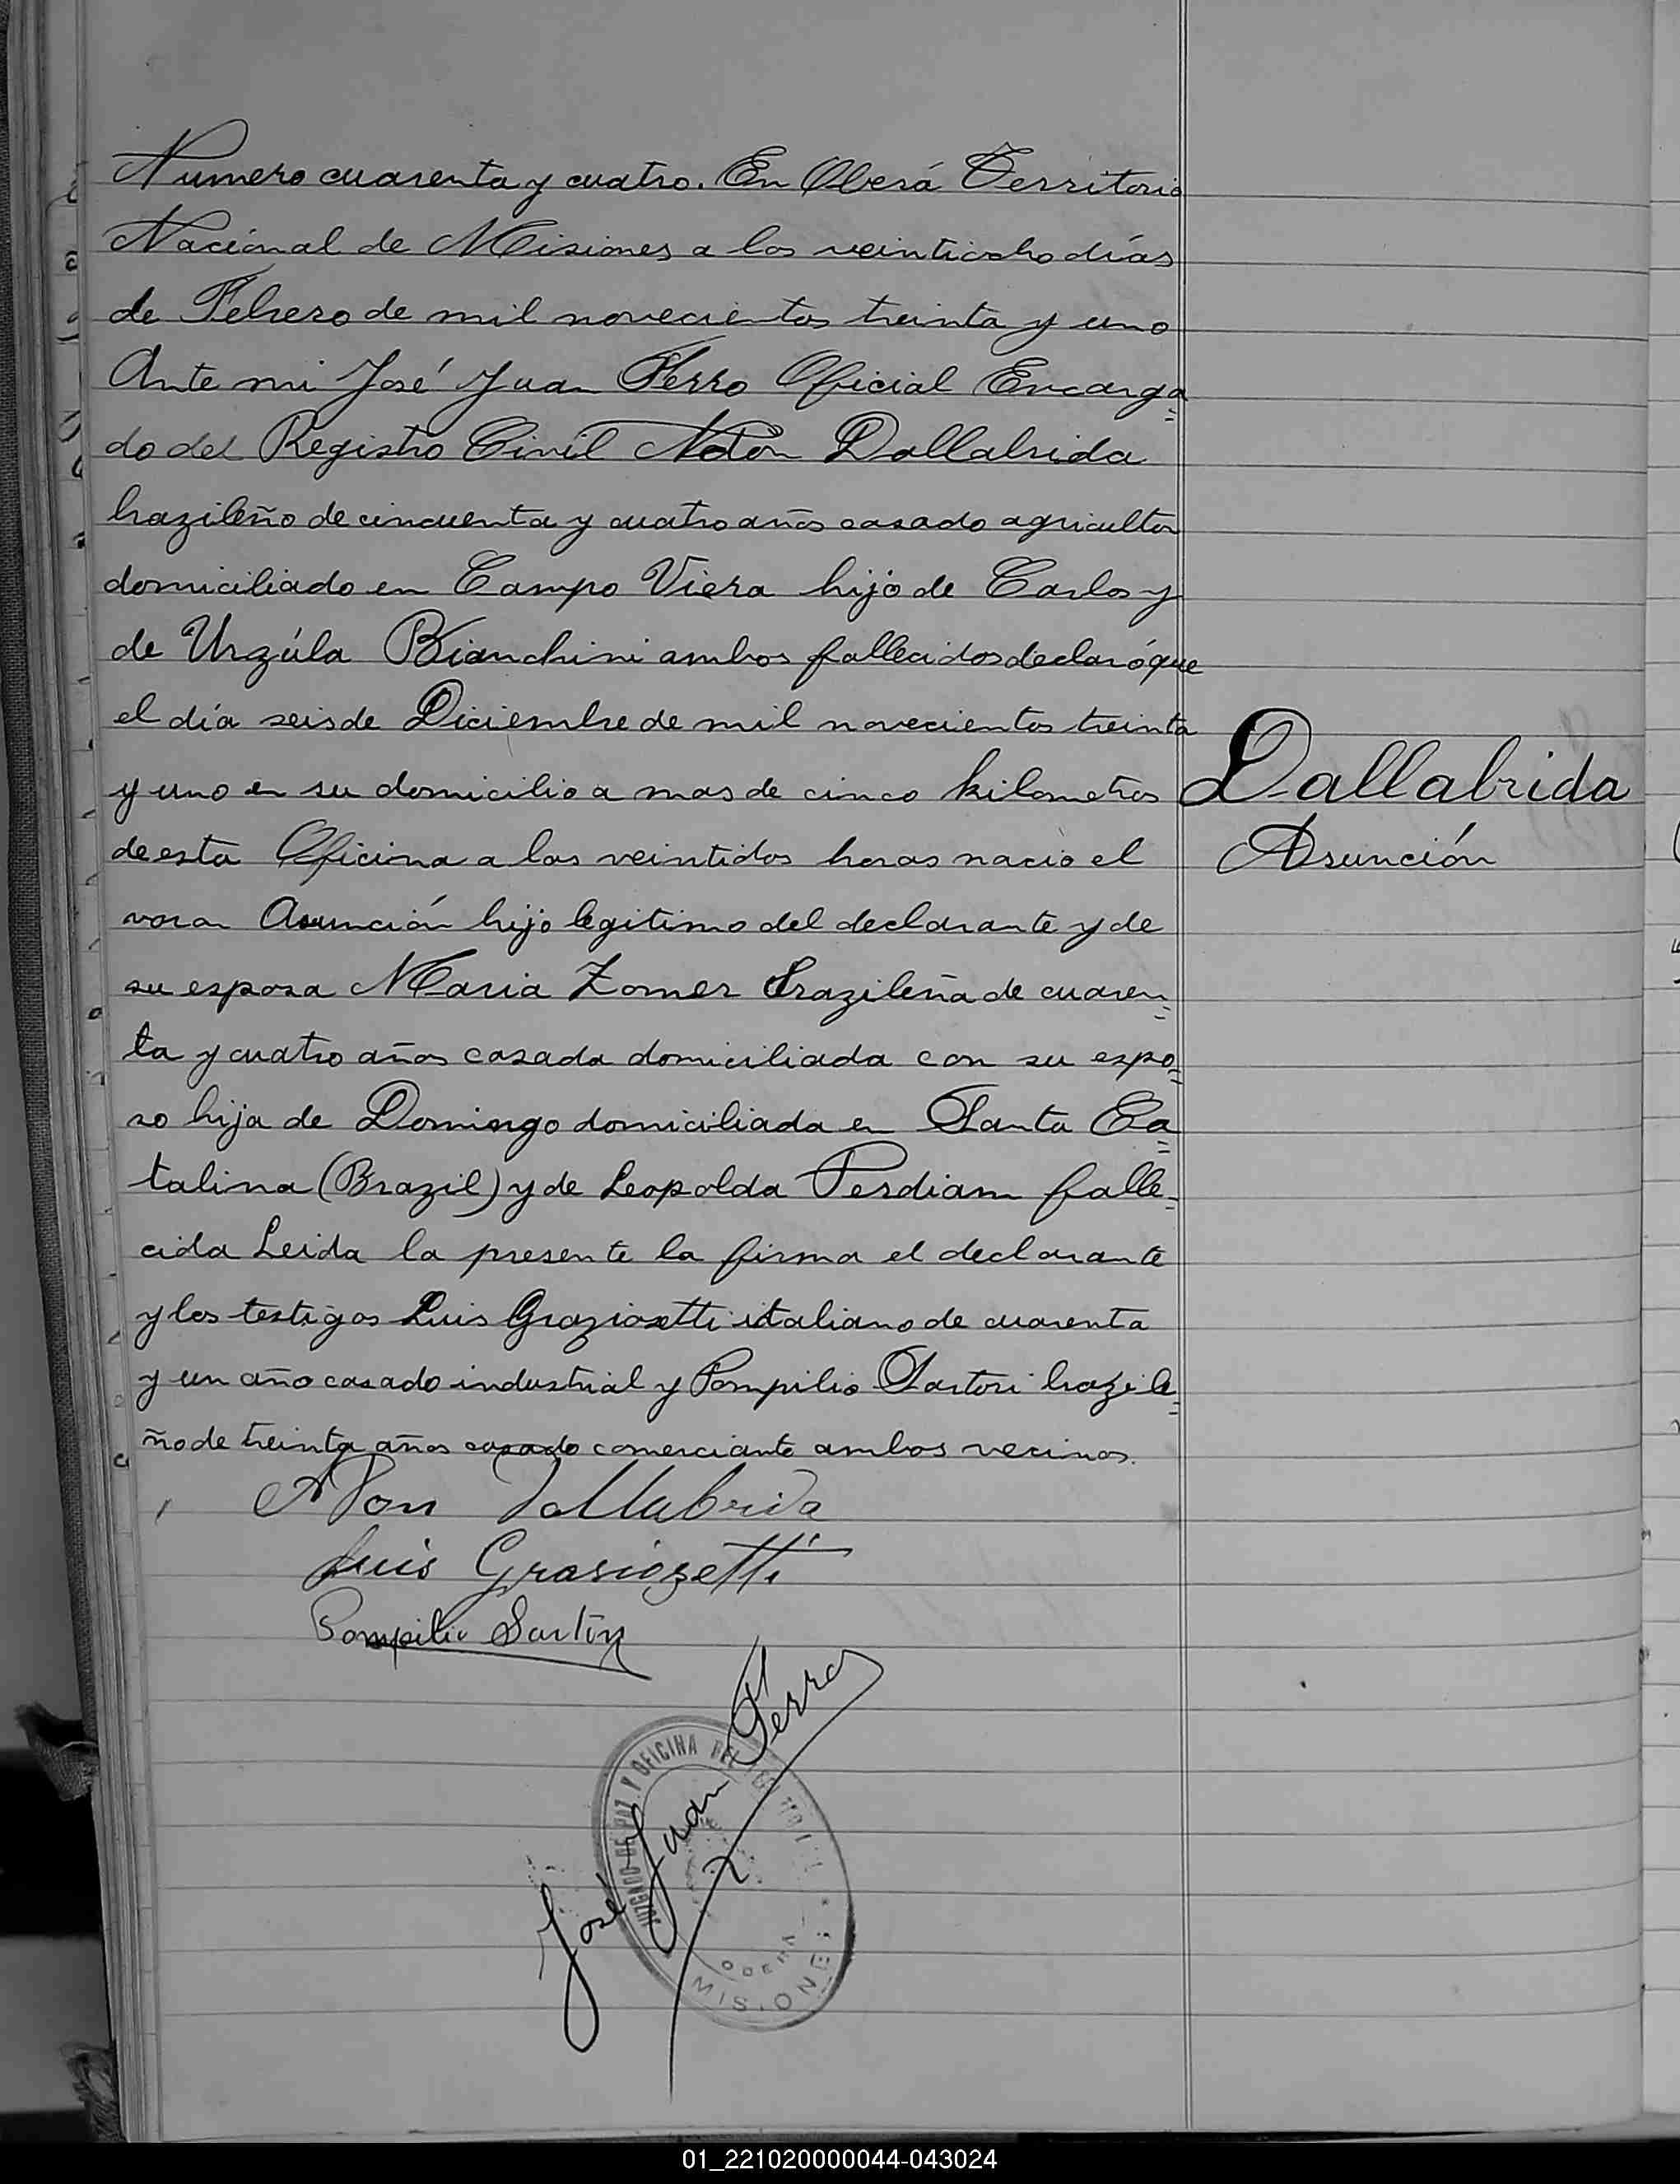 Numero cuarenta y cuatro. En Oberá Territorio
Nacional de Misiones a los veintiocho días
de Febrero de mil novecientos treinta y uno
Ante mi José Juan Ferro Oficial Encarga=
do del Registro Civil Natón Dallabrida
brazileño de cincuenta y cuatro años casado agricultor
domiciliado en Campo Viera hijo de Carlos y
de Urzúla Bianchini ambos fallecidos declaró que
el día seis de Diciembre de mil novecientos treinta
y uno en su domicilio a mas de cinco kilometros
Dallabrida
de esta Oficina a las veintidos horas nacio el
Asunción
varon Asunción hijo legitimo del declarante y de
su esposa Maria Zomer Brazileña de cuaren=
ta y cuatro años casada domiciliada con su espo=
so hija de Domingo domiciliada en Santa Ca=
talina (Brazil) y de Leopolda Perdiam falle=
cida Leida la presente la firma el declarante
y los testigos Luis Graziosetti italiano de cuarenta
y un año casado industrial y Pompilio Sartori brazile=
ño de treinta años casado comerciante ambos vecinos.
Dallabrida
Luis Grasiozetti
Pompilio Sartori
José Juan Ferro
JUZGADO DE PAZ Y OFICINA DEL
MISIONES
01_221020000044-043024